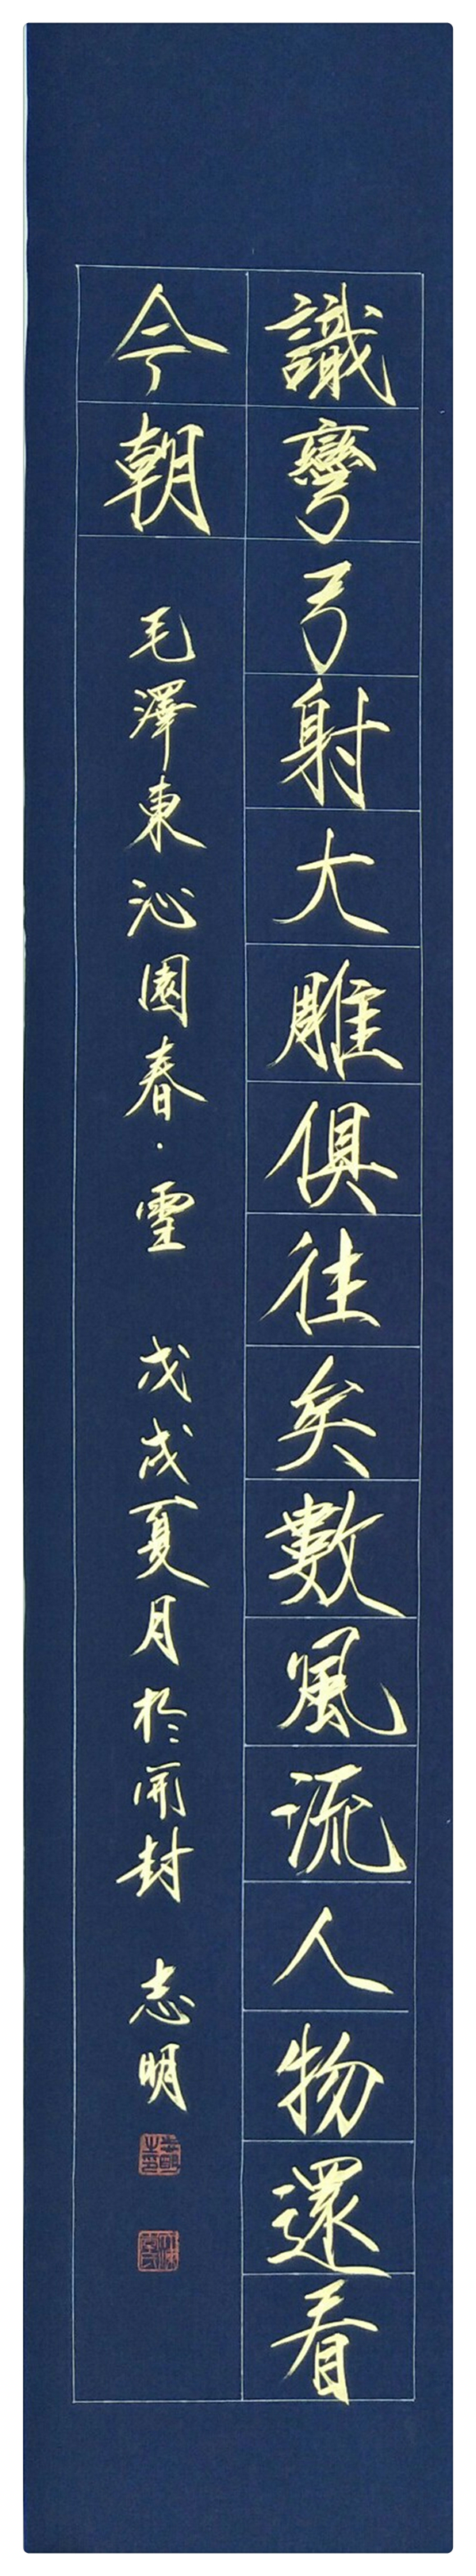 識彎弓射大雕俱往矣數風流人物還看
今朝
毛澤東沁園春·雪 戊戌夏月於開封 志明